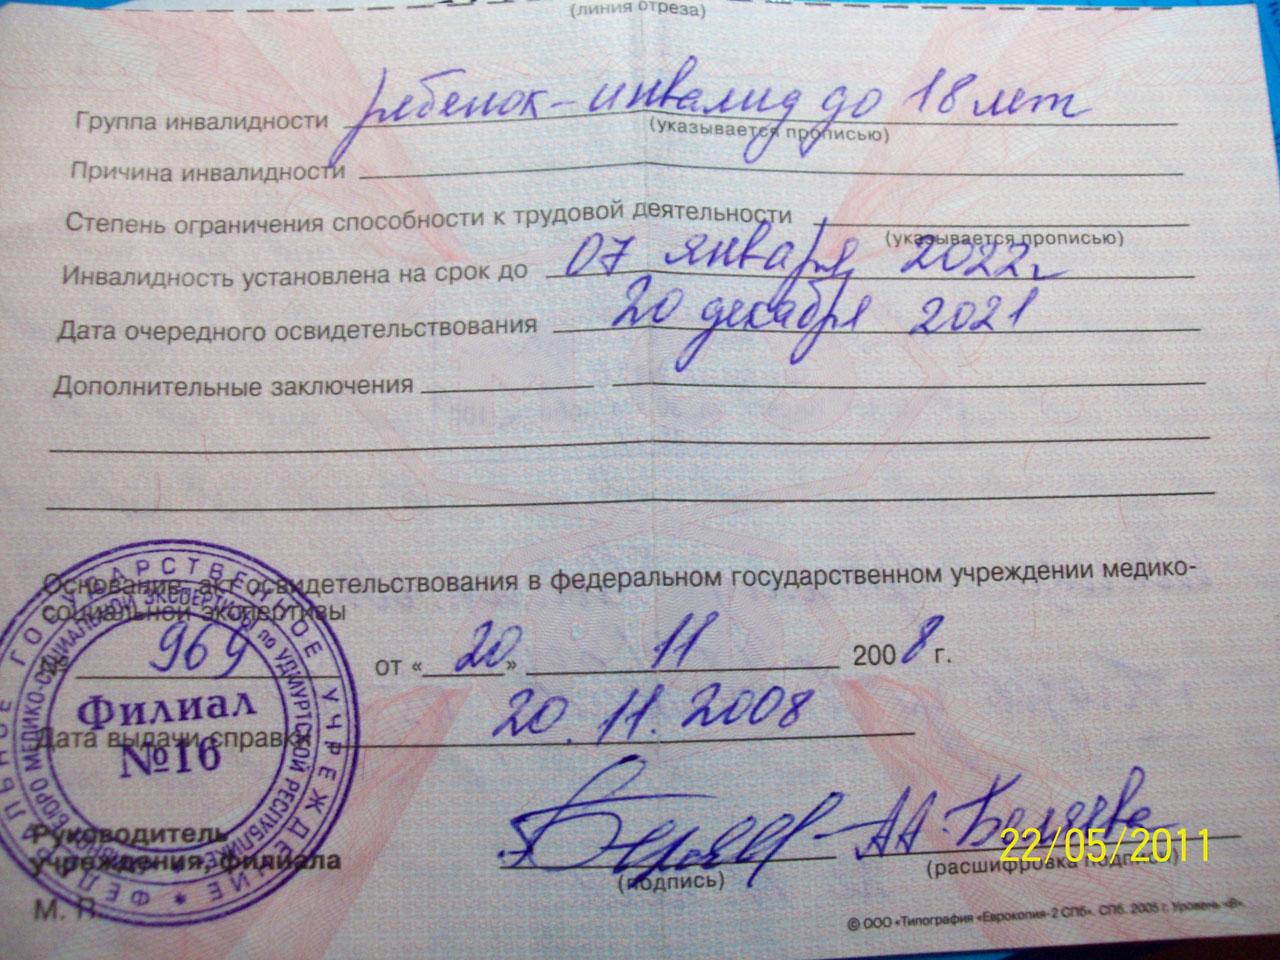 (линия отреза)
Группа инвалидности ребенок-инвалид до 18 лет
(указывается прописью)
Причина инвалидности
Степень ограничения способности к трудовой деятельности
(указывается прописью)
Инвалидность установлена на срок до 07 января 2022г
Дата очередного освидетельствования 20 декабря 2021
Дополнительные заключения
Основание: акт освидетельствования в федеральном государственном учреждении медико-
социальной экспертизы
№ 969 от « 20 » 11 2008 г.
Дата выдачи справки 20.11.2008
Филиал
№16
Руководитель
учреждения, филиала
А.А. Беляева
(подпись) (расшифровка подписи)
М. П.
22/05/2011
© ООО «Типография «Еврокопия-2 СПб». СПб. 2005 г. Уровень «В».